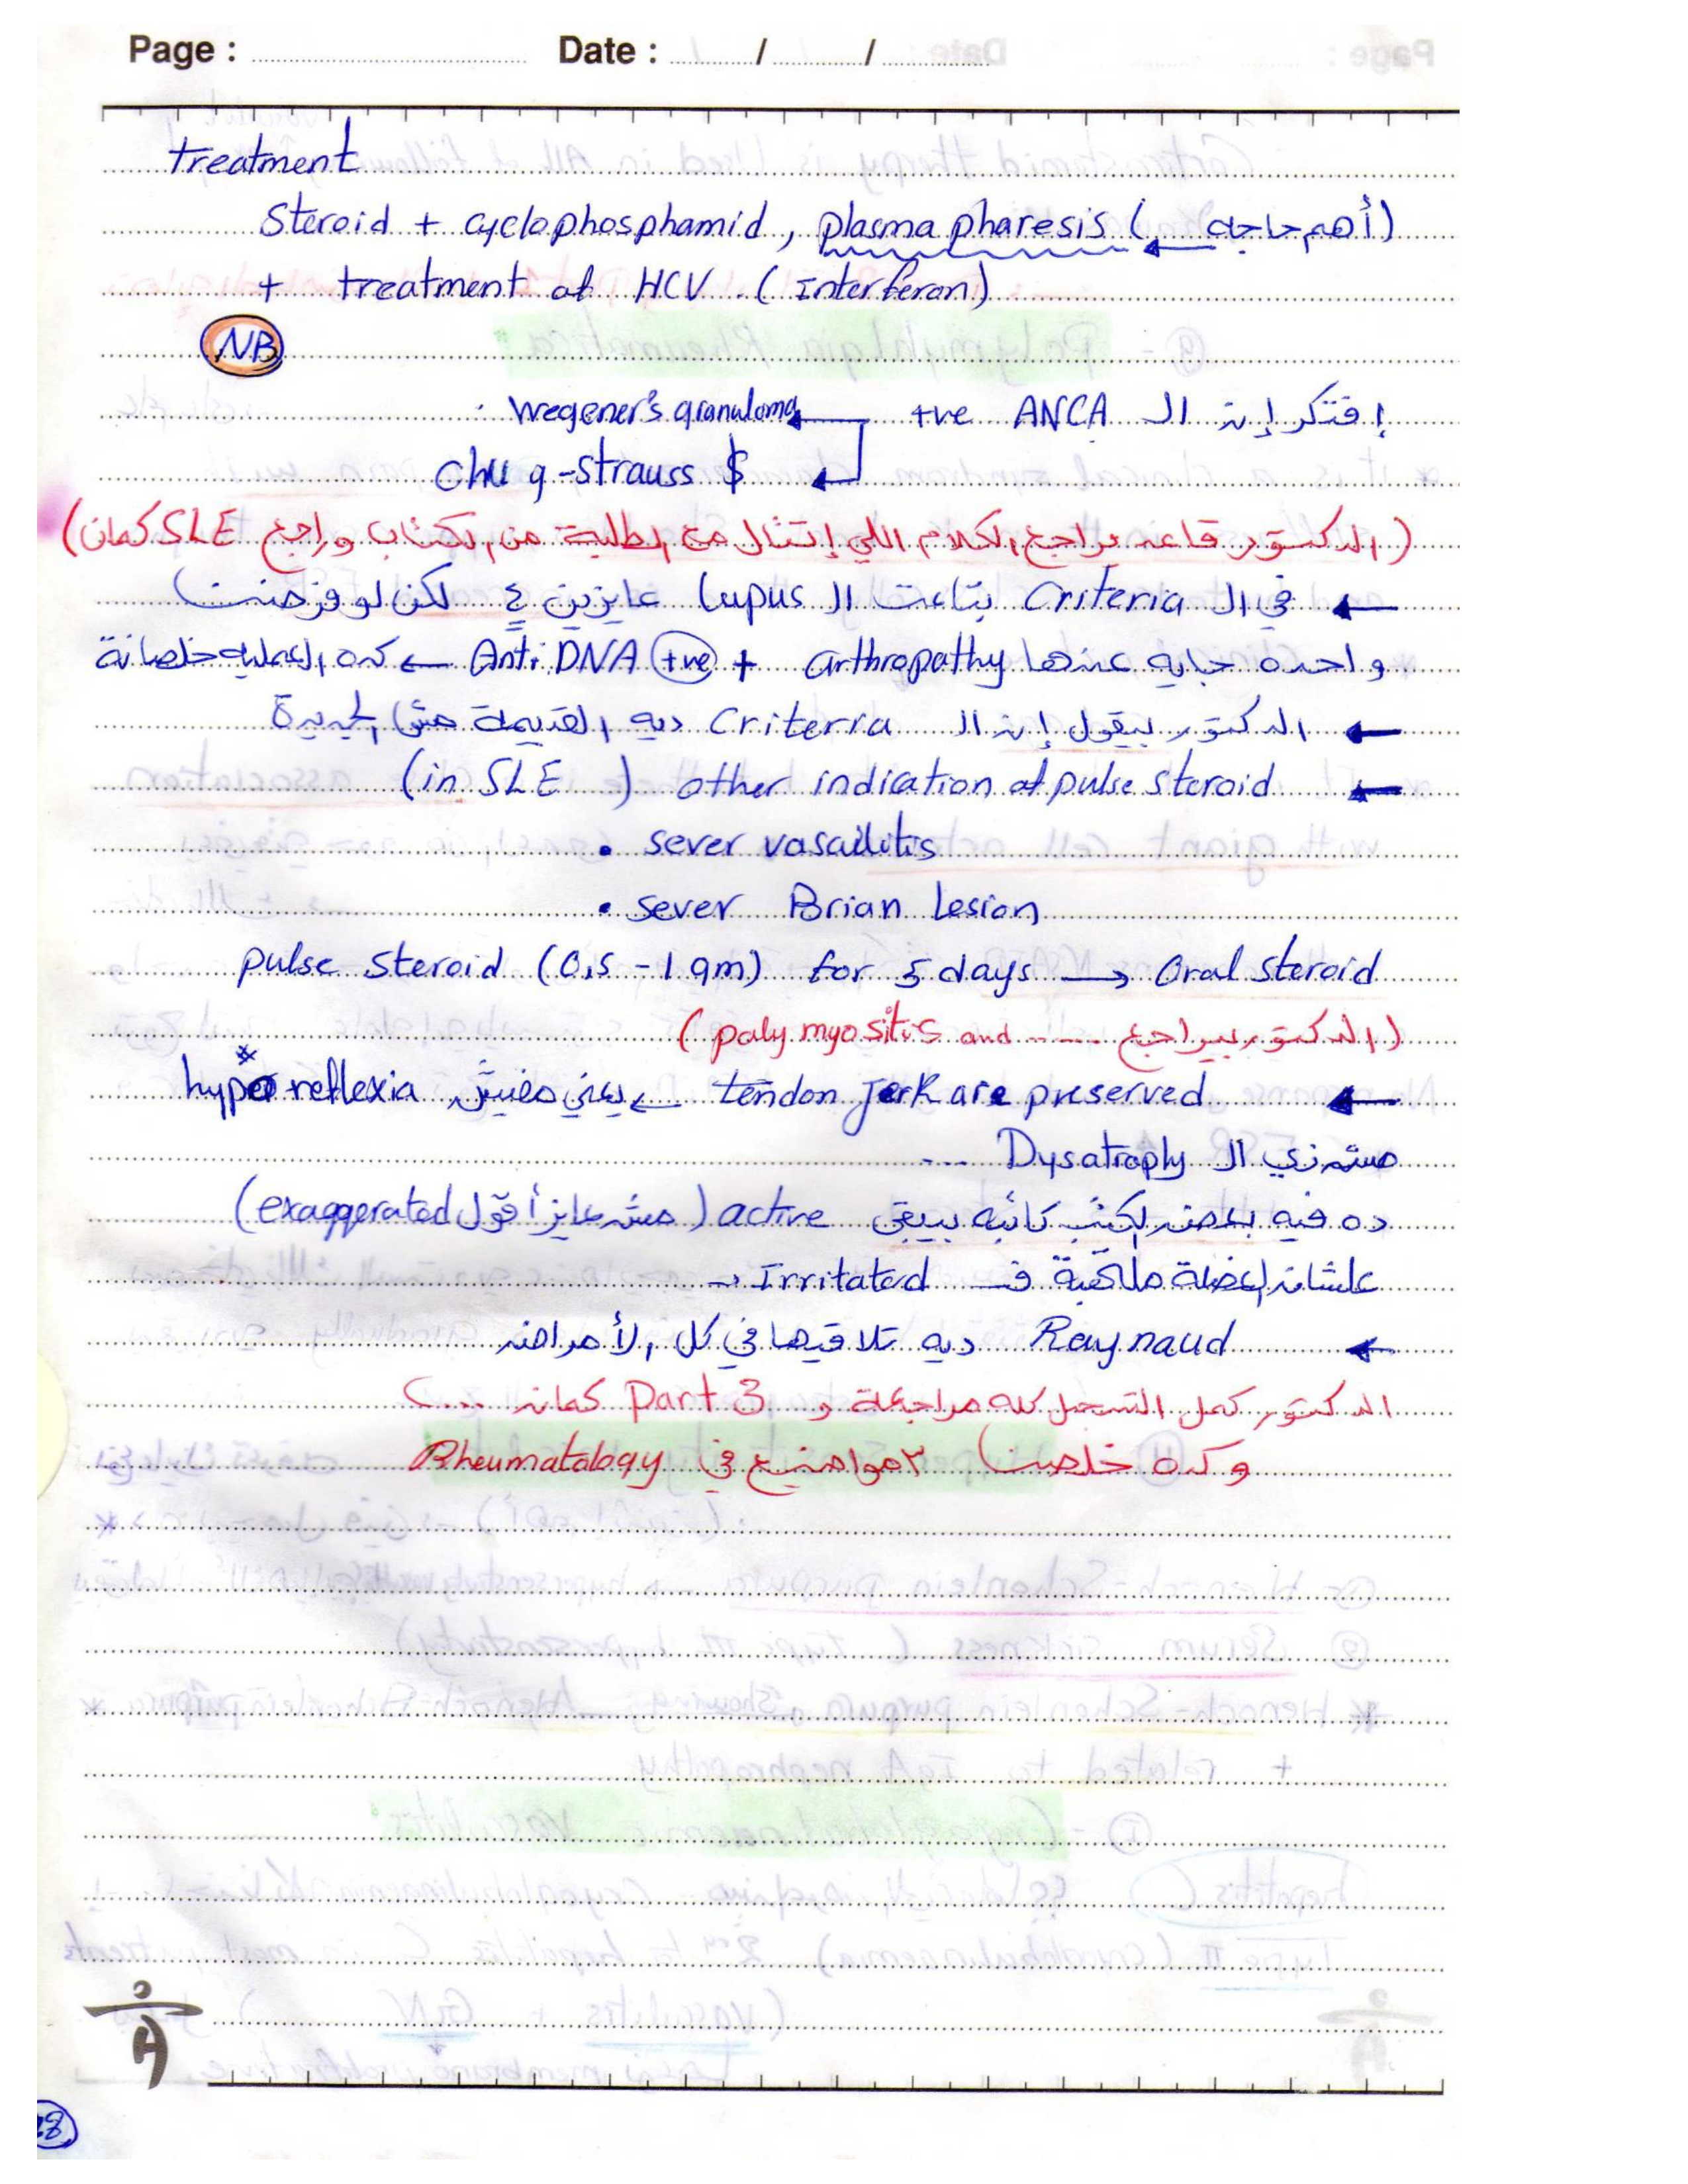 Page : Date : / /
treatment
Steroid + cyclophosphamid , plasma pharesis ( ← أهم حاجه )
+ treatment of HCV . ( Interferon )
NB
إفتكر إن الـ ANCA +ve ← wegener's granuloma .
chu g-strauss $
( الدكتور قاعد يراجع الكلام اللي إتقال مع الطلبة من الكتاب وراجع SLE كمان )
← في الـ Criteria بتاعت الـ Lupus عايزين ٤ لكن لو فرضت
واحده جايه عندها arthropathy + Anti DNA +ve ← كده العمليه خلصانة
← الدكتور بيقول إن الـ Criteria ديه القديمة مش الجديدة
← other indication of pulse steroid ( in SLE )
• sever vasculitis
• sever Brian Lesion
pulse steroid ( 0,5 - 1 gm ) for 5 days → Oral steroid
( الدكتور بيراجع ..... poly myositis and )
← tendon Jerk are preserved ← يعني مفيش hyper reflexia
مش زي الـ Dysatroply ...
ده فيه بعض الكتب كأنه بيبقى active ( مش عايز أقول exaggerated )
علشان العضلة ملتهبة فـ Irritated →
← Raynaud ديه تلاقيها في كل الأمراض
الدكتور كمل التسجيل كله مراجعة و Part 3 كمان ....
وكده خلصت ٣ مواضيع في Rheumatology
28